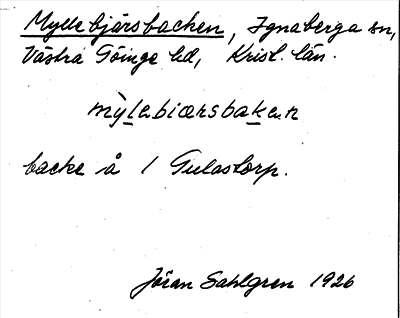 Myllebjärsbacken, Ignaberga sn,
Västra Göinge hd, Krist. län.
mỳlebiærsbaken
backe å 1 Gulastorp.
Jöran Sahlgren 1926